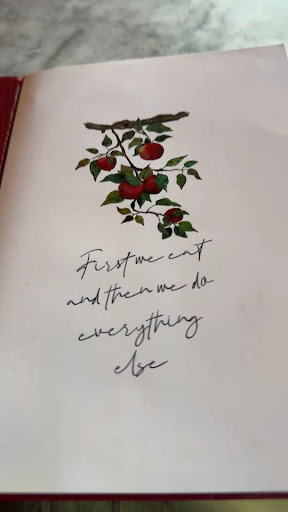 First we eat
and then we do
everything
else